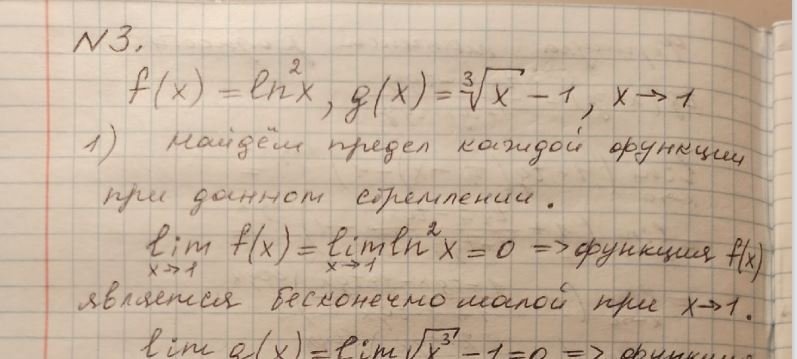 N3.
f(x) = ln²x, g(x) = ∛x - 1, x → 1
1) Найдём предел каждой функции
при данном стремлении.
lim f(x) = lim ln²x = 0 => функция f(x)
x→1 x→1
является бесконечно малой при x→1.
lim g(x) = lim √x³ - 1 = 0 => функция